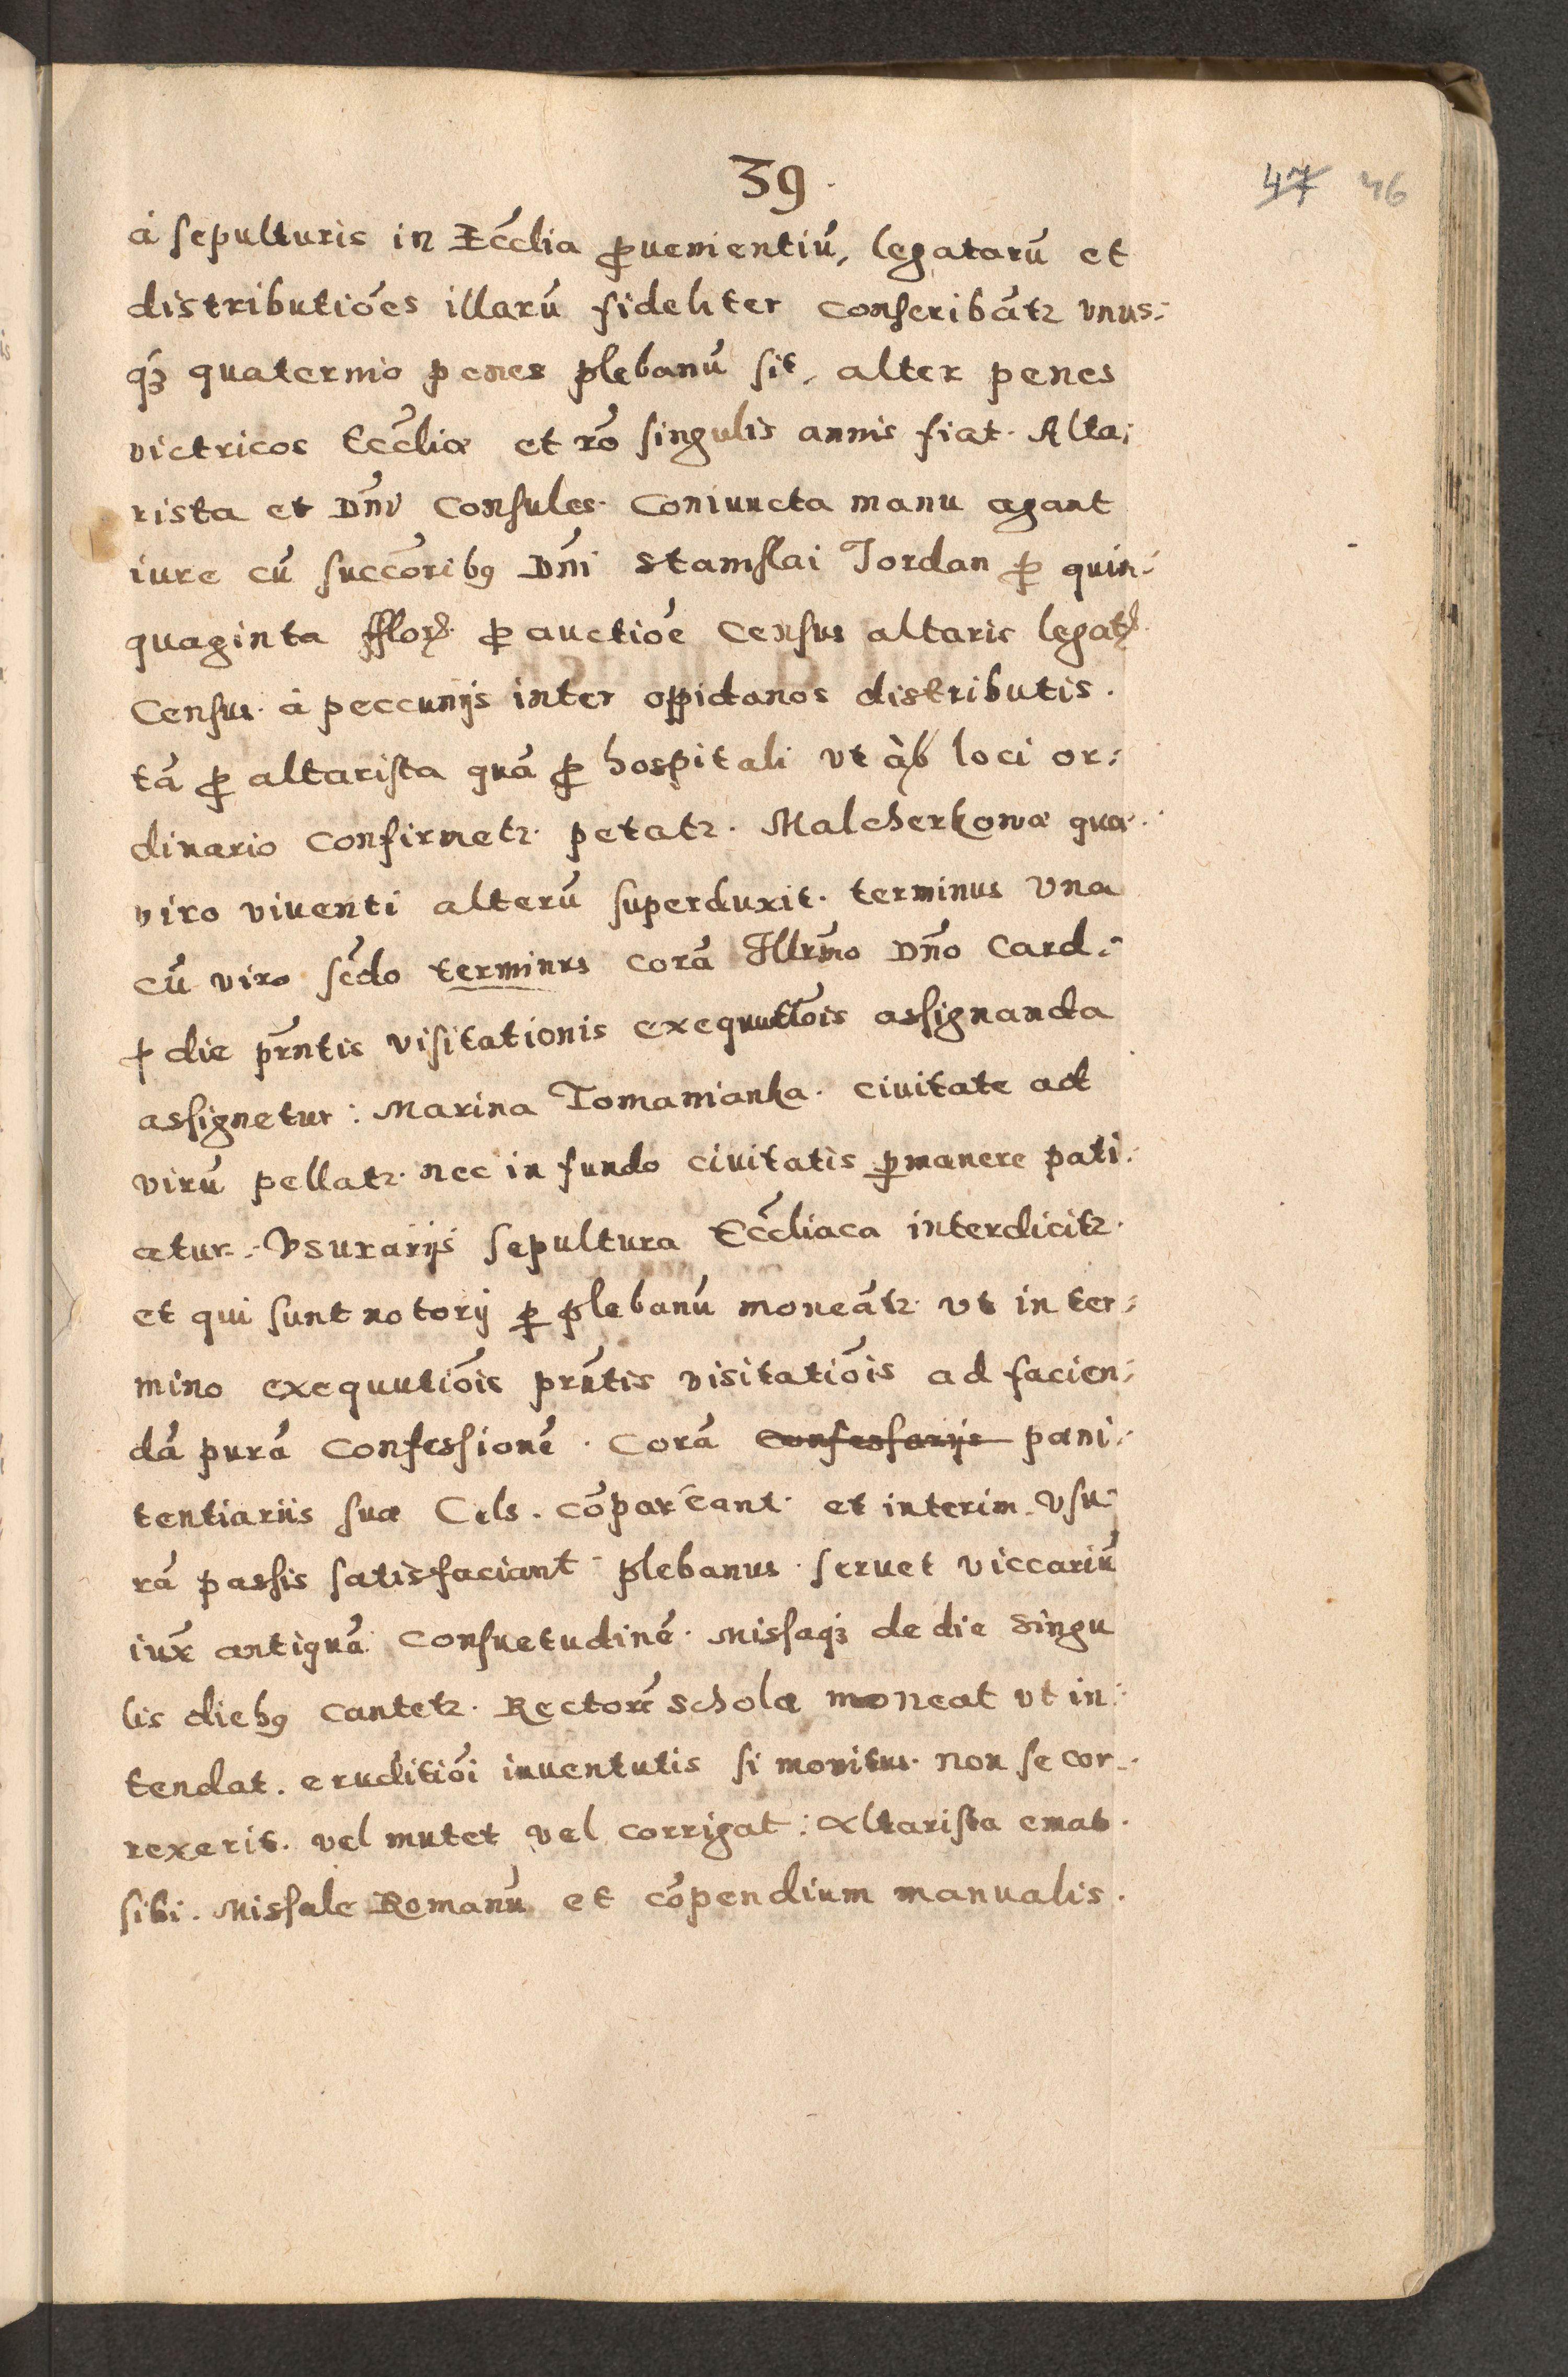 39.
47 46
à sepulturis in Ecclia ꝓuenientiũ, legatarũ et
distributiões illarũ fideliter conscribãtr vnus:
qꝫ quaternio penes plebanũ sit, alter penes
victricos Ecclie et rõ singulis annis fiat. Alta:
rista et Dñi Consules. Coniuncta manu agant
iure cũ succõribꝰ Dñi Stanislai Jordan ꝓ quin:
quaginta fflorꝝ. ꝓ auctiõe census altaris legatꝭ
Census à peccunijs inter oppidanos distributis.
tã ꝓ altarista quã ꝓ hospitali vt àb loci or:
dinario confirmetr. petatr. Malcherkowa quæ
viro viuenti alterũ superduxit. terminus vna
cũ viro scdo terminus corã Illrmo Dño Card:
ꝓ die pñtis visitationis exequutiõis assignanda
assignetur: Marina Tomanianka. ciuitate ad
virũ pellatr. nec in fundo ciuitatis ꝑmanere pati:
atur: Vsurarijs sepultura Eccliaca interdicitr.
et qui sunt notorij ꝑ plebanũ moneãtr vt in ter:
mino exequutiõis pñtis visitatiõis ad facien:
dã purã Confessionẽ. Corã confessarijs pæni:
tentiariis suæ Cels. cõpareant. et interim vsu:
rã passis satisfaciant plebanus. seruet viccariũ
iux antiquã consuetudinẽ. Missaqꝫ de die singu
lis diebꝰ cantetr. Rectorẽ scholæ moneat vt in:
tendat. eruditiõi iuuentutis si monitus. non se cor:
rexerit. vel mutet vel corrigat: Altarista emat.
sibi. Missale Romanũ et cõpendium manualis.